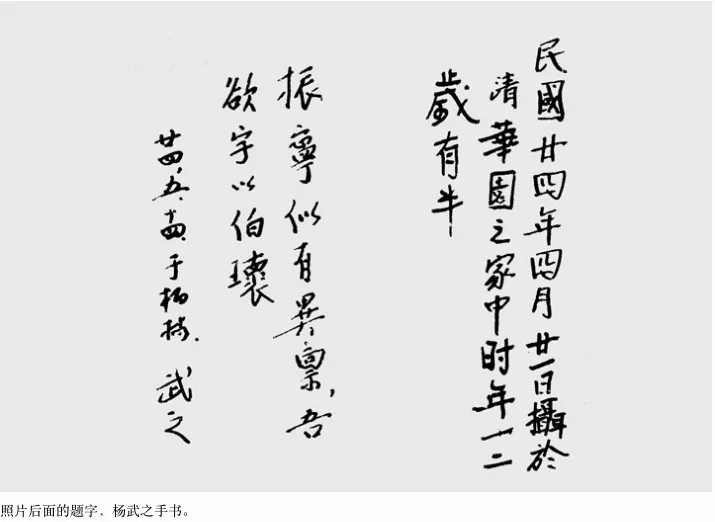 民國廿四年四月廿一日攝於
清華園之家中时年十二
歲有半
振寧似有異稟,吾
欲字以伯瓌
廿四、五、十四、于柏林、武之
照片后面的题字，杨武之手书。